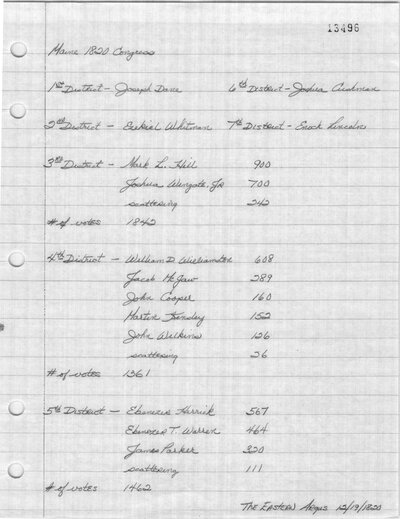 13496
Maine 1820 Congress
1st District - Joseph Dane 6th District - Joshua Cushman
2nd District - Ezekiel Whitman 7th District - Enoch Lincoln
3rd District - Mark L. Hill 900
Joshua Wingate, Jr 700
scattering 242
# of votes 1842
4th District - William D. Williamson 608
Jacob McGaw 289
John Cooper 160
Martin Kinsley 152
John Wilkins 126
scattering 26
# of votes 1361
5th District - Ebenezer Herrick 567
Ebenezer T. Warren 464
James Parker 320
scattering 111
# of votes 1462
The Eastern Argus 12/19/1820